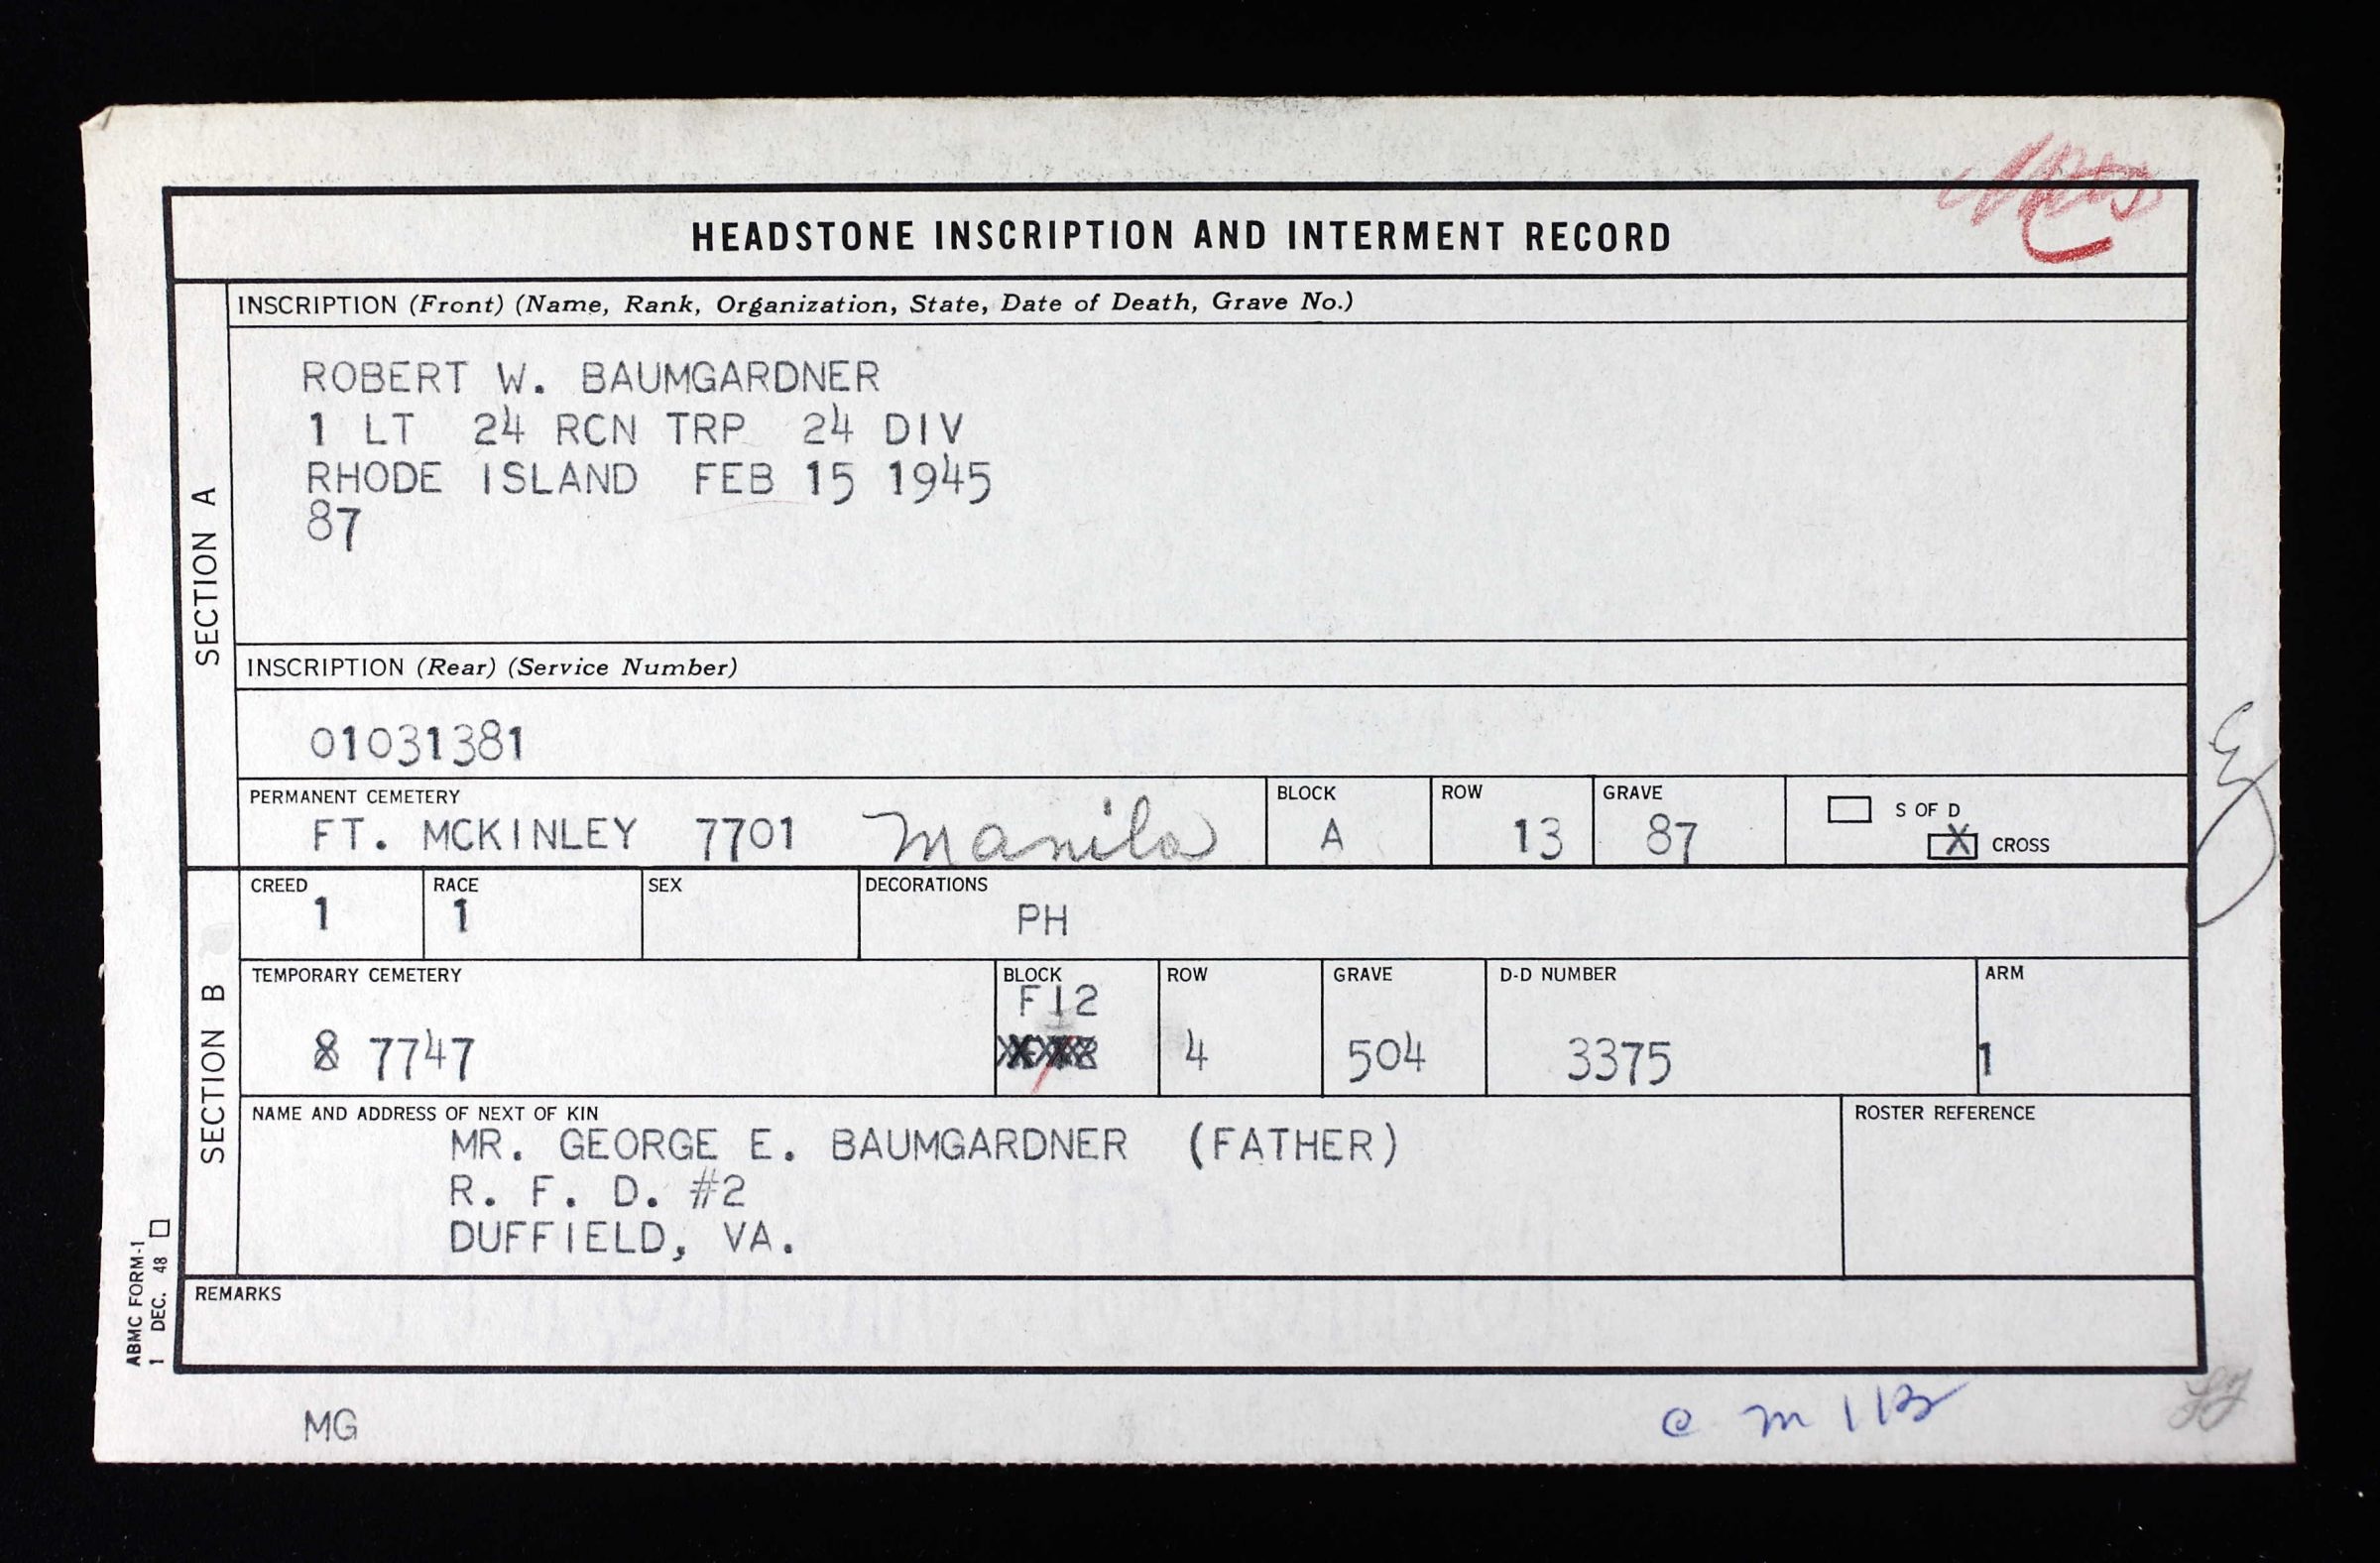 HEADSTONE INSCRIPTION AND INTERMENT RECORD
SECTION A
INSCRIPTION (Front) (Name, Rank, Organization, State, Date of Death, Grave No.)
ROBERT W. BAUMGARDNER
1 LT 24 RCN TRP 24 DIV
RHODE ISLAND FEB 15 1945
87
INSCRIPTION (Rear) (Service Number)
01031381
PERMANENT CEMETERY
FT. MCKINLEY 7701 Manila
BLOCK
A
ROW
13
GRAVE
87
S OF D
X CROSS
SECTION B
CREED
1
RACE
1
SEX
DECORATIONS
PH
TEMPORARY CEMETERY
8 7747
BLOCK
F12
ROW
4
GRAVE
504
D-D NUMBER
3375
ARM
1
NAME AND ADDRESS OF NEXT OF KIN
MR. GEORGE E. BAUMGARDNER (FATHER)
R. F. D. #2
DUFFIELD, VA.
ROSTER REFERENCE
REMARKS
ABMC FORM-1
1 DEC. 48
MG
c m 113